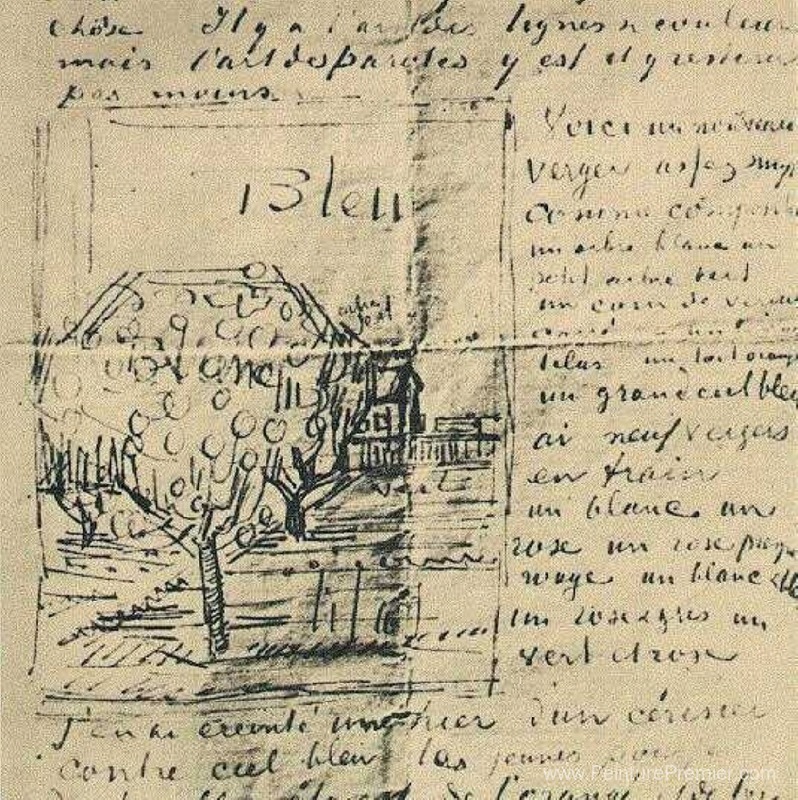 chose Il y a l'art des lignes & couleurs
mais l'art des paroles y est et y restera
pas moins.
Bleu
blanc
vert
Voici un nouveau
verger assez simple
comme composition
un arbre blanc un
petit arbre vert
un carré de verdure
lilas un toit orangé
un grand ciel bleu
ai neuf vergers
en train
un blanc un
rose un rose presque
rouge un blanc et bleu
un rose & gris un
vert et rose
J'en ai éreinté un hier d'un cerisier
contre ciel bleu les jeunes pousses
de l'orangé
www.PeinturePremier.com